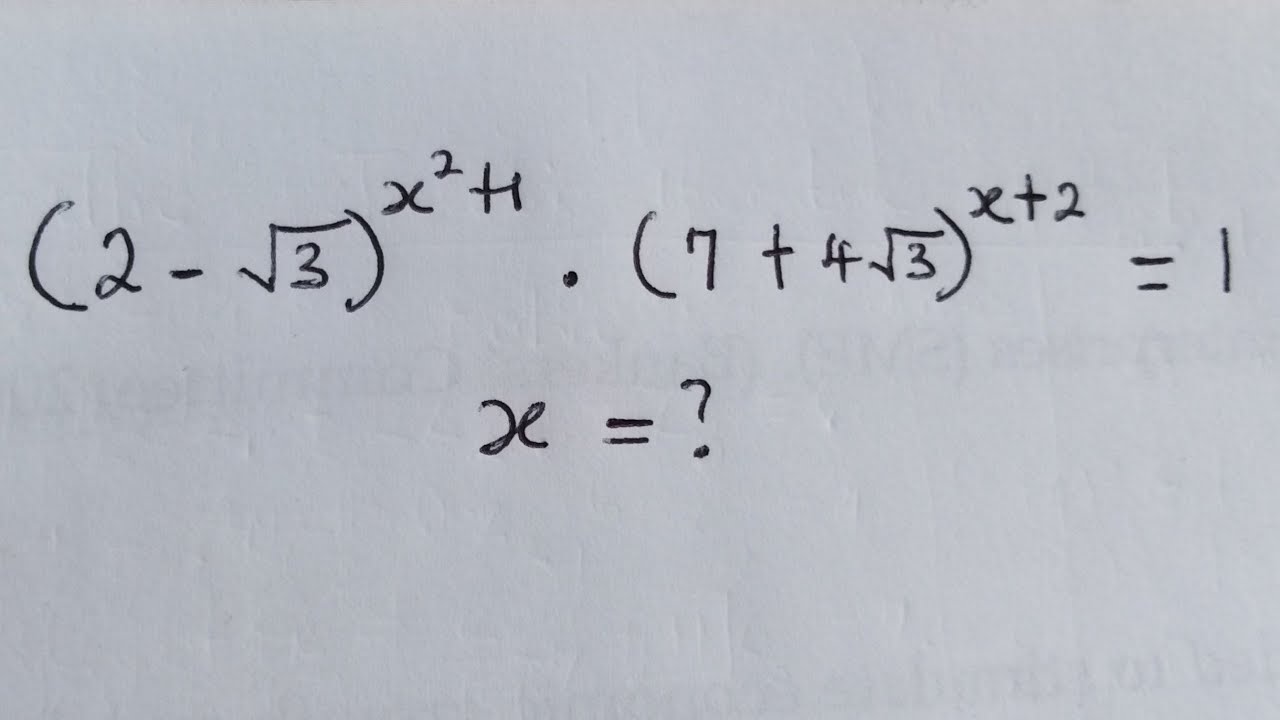 (2 - √3)^{x²+1} . (7 + 4√3)^{x+2} = 1
x = ?